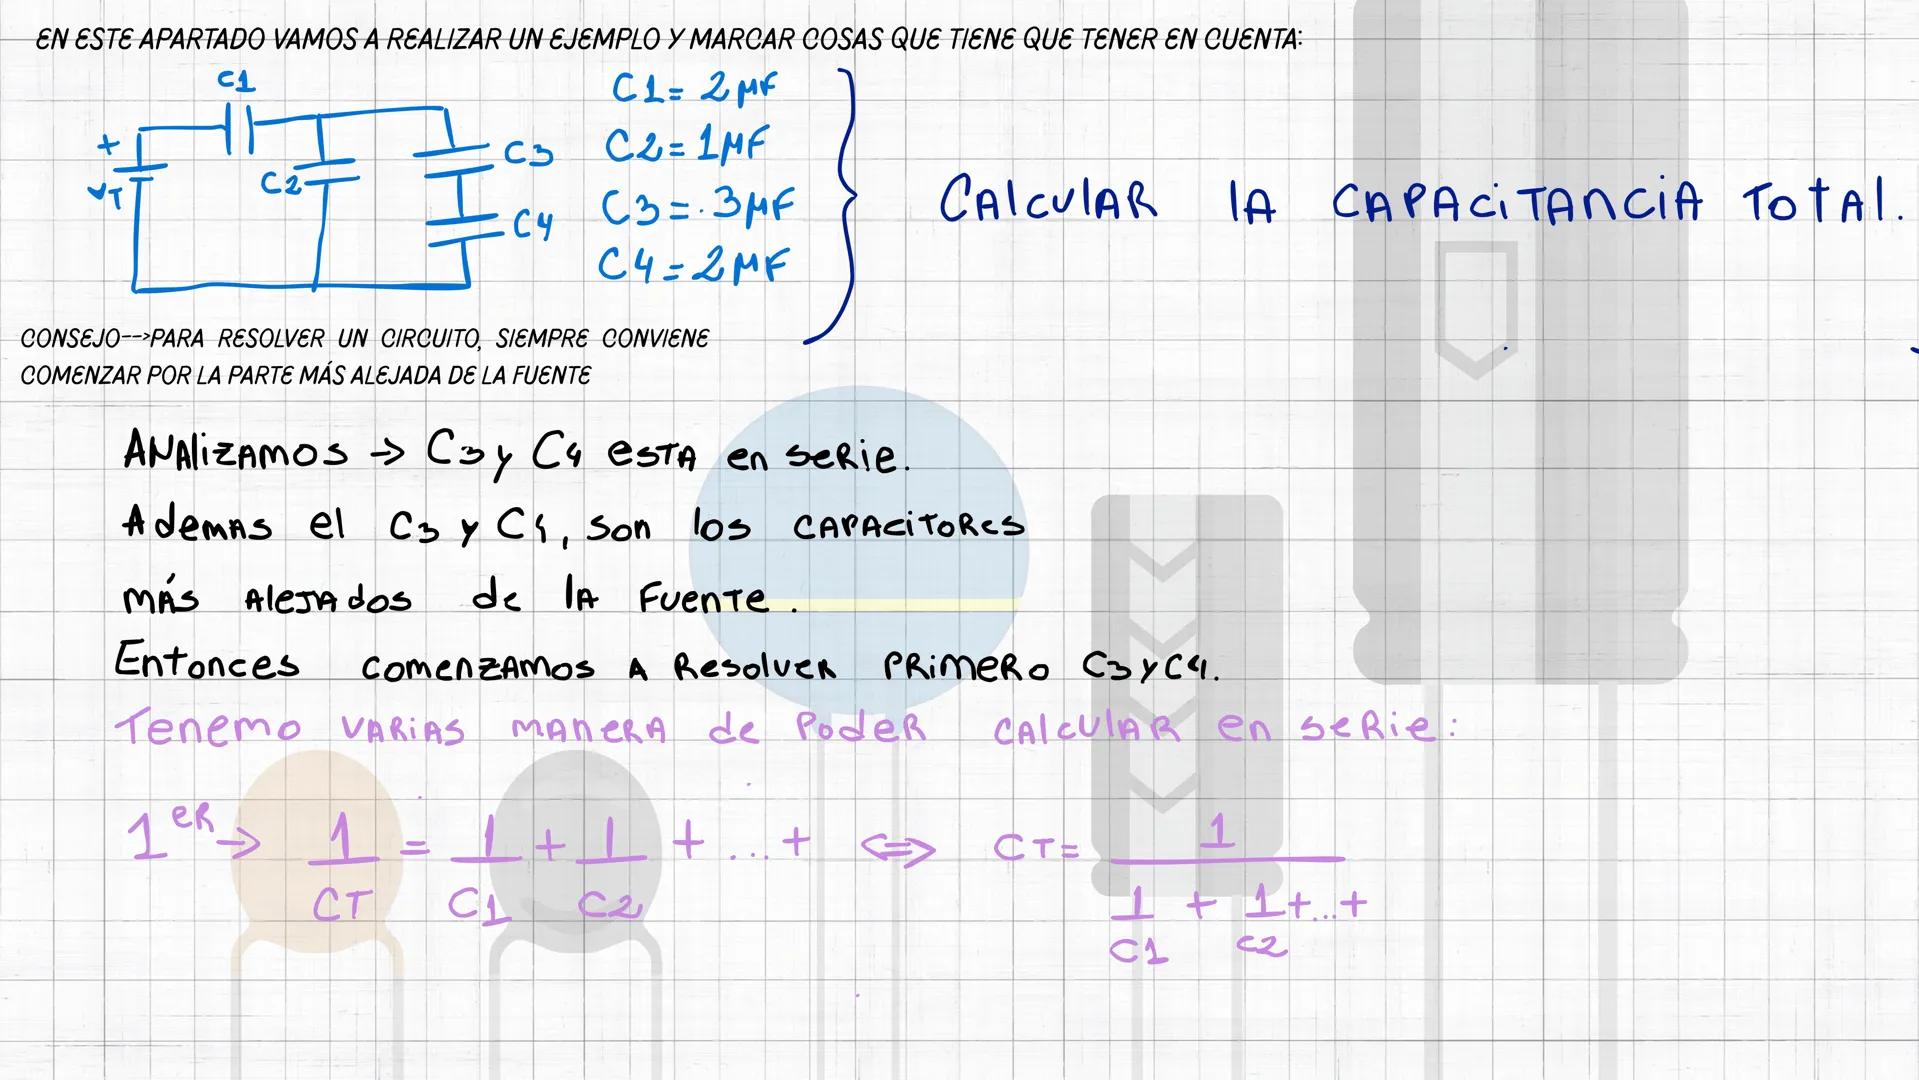 EN ESTE APARTADO VAMOS A REALIZAR UN EJEMPLO Y MARCAR COSAS QUE TIENE QUE TENER EN CUENTA:
C1
+
VT
C2
C3
C4
C1= 2 μF
C2= 1 μF
C3=.3 μF
C4=2 μF
CAlcUlAR lA CAPACiTAnCiA ToTAl.
CONSEJO-->PARA RESOLVER UN CIRCUITO, SIEMPRE CONVIENE
COMENZAR POR LA PARTE MÁS ALEJADA DE LA FUENTE
ANAlizAmos → C3 y C4 esTA en seRie.
AdemAs el C3 y C4, son los CAPACiToRes
mÁs AleJAdos de lA FuenTe.
Entonces comenzAmos A ResolveR PRimeRo C3 y C4.
Tenemo VARiAs mAneRA de PodeR CAlculAR en seRie:
1 eR → 1/CT = 1/C1 + 1/C2 + ... + <=> CT= 1/(1/C1 + 1/C2 +...+